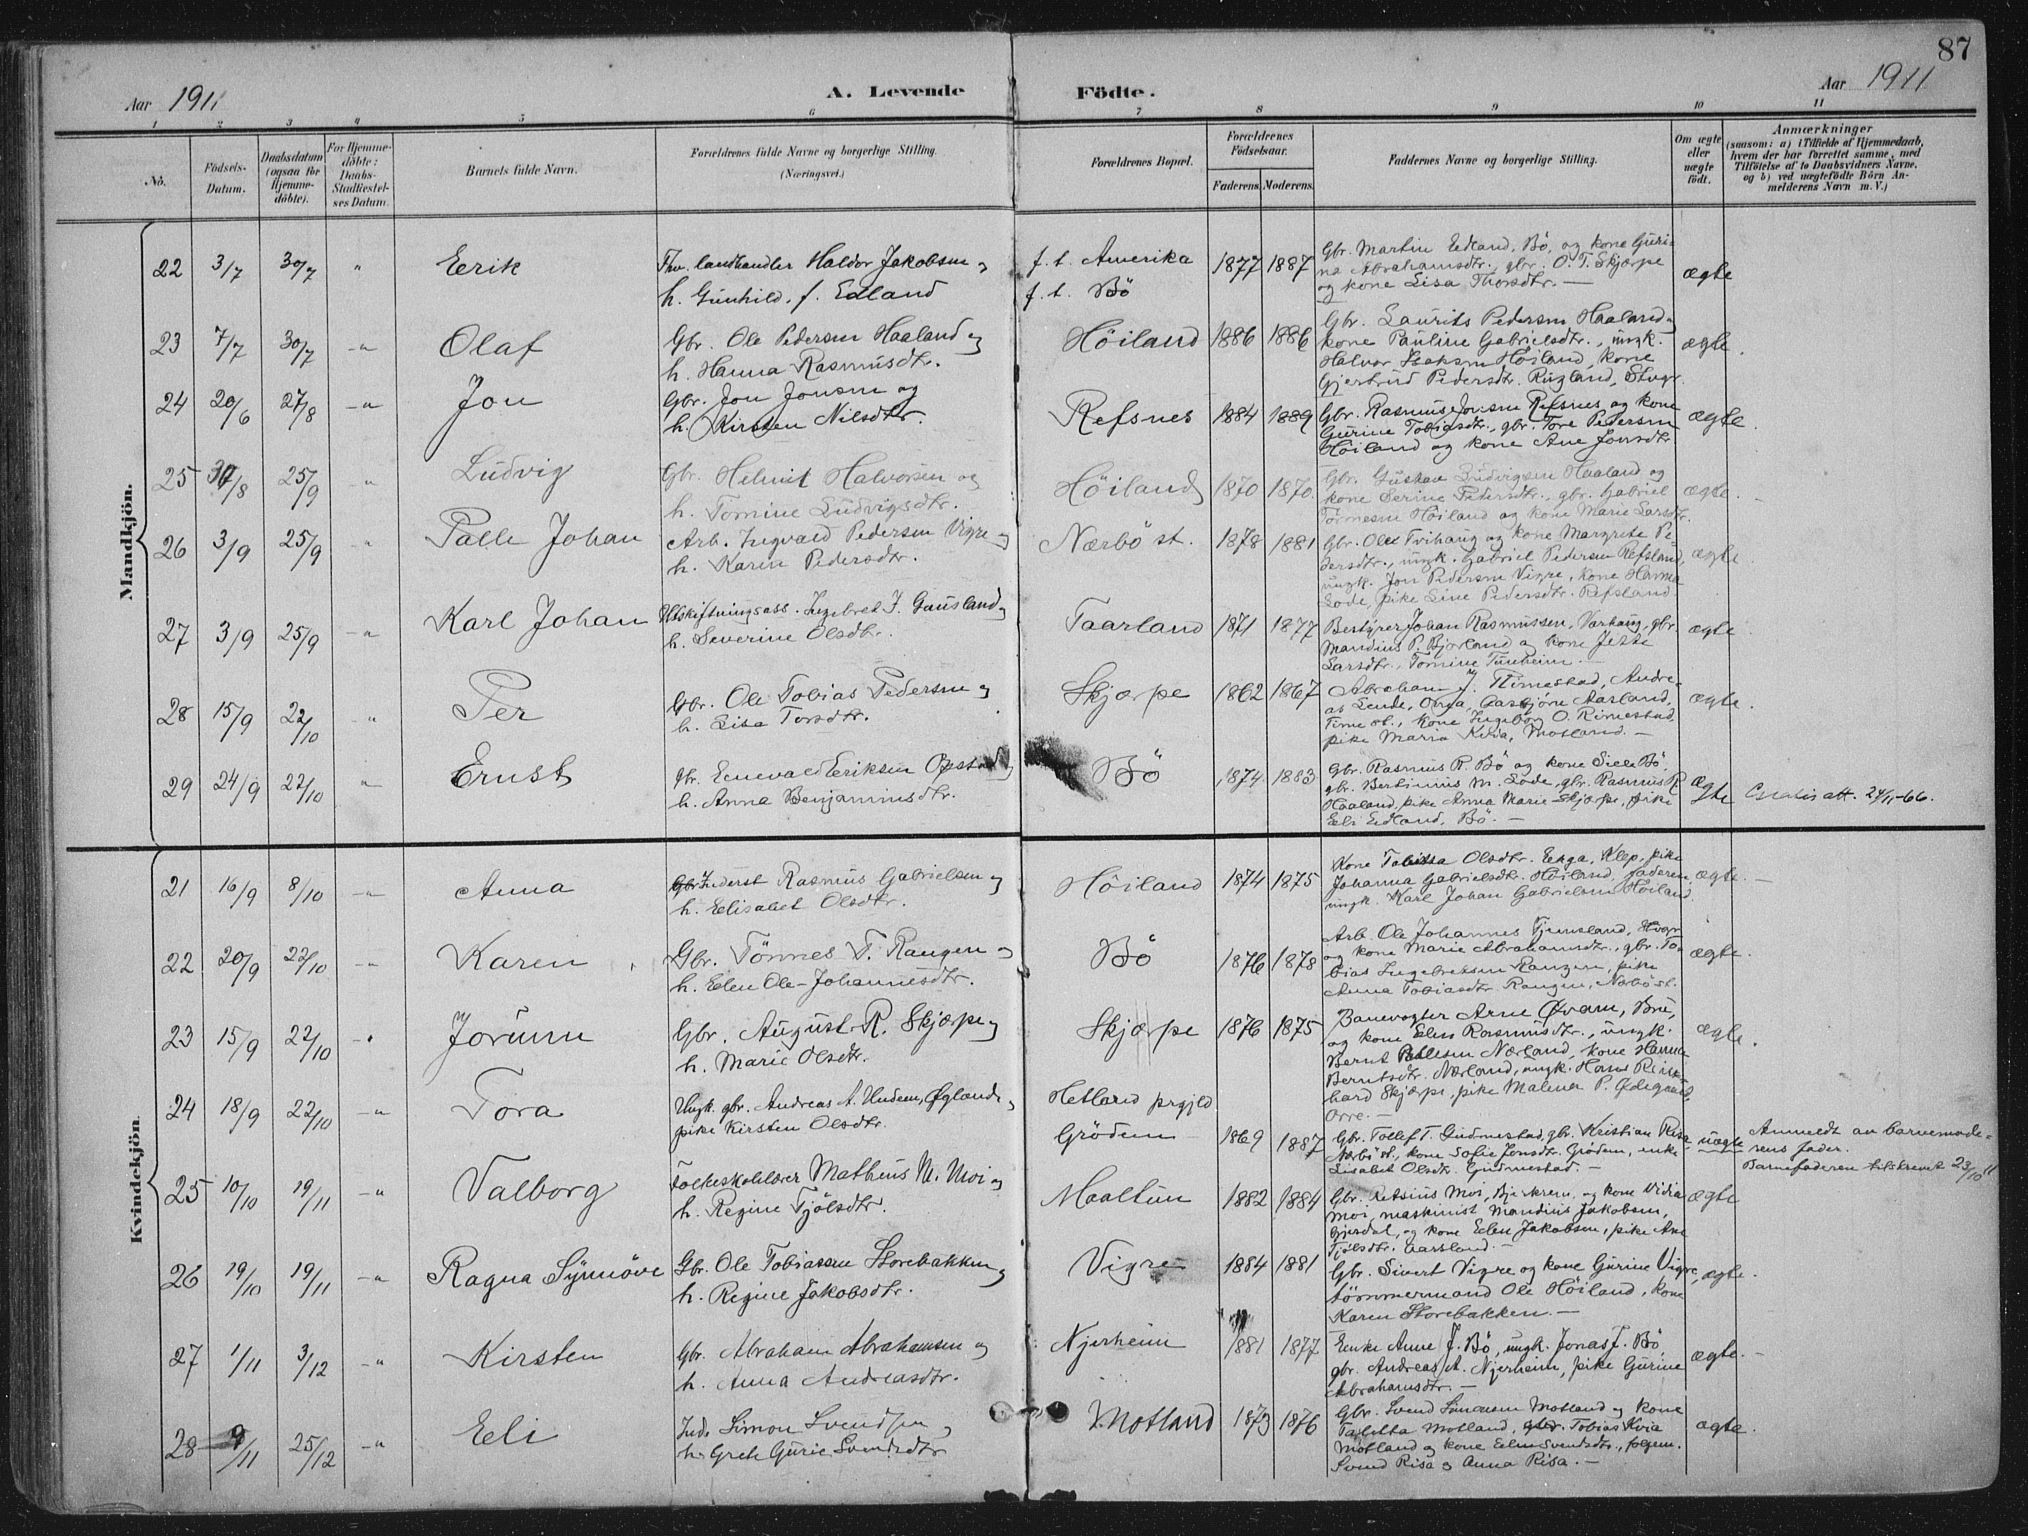 87
Aar 1911 A. Levende Födte. Aar 1911
1 2 3 4 5 6 7 8 9 10 11
No. Födsels-Datum. Daabsdatum (ogsaa for Hjemmedöbte). For Hjemmedöbte: Daabs-Stadfæstelses Datum. Barnets fulde Navn. Forældrenes fulde Navne og borgerlige Stilling. (Næringsvei.) Forældrenes Bopæl. Forældrenes Födselsaar. Faderens. Moderens. Faddernes Navne og borgerlige Stilling. Om ægte eller uægte födt. Anmærkninger (saasom: a) i Tilfælde af Hjemmedaab, hvem der har forrettet samme, med Tilföielse af to Daabsvidners Navne, og b) ved uægtefödte Börn Anmelderens Navn m. V.)
Mandkjön.
22 3/7 30/7 " Erik Fhv. landhandler Haldor Jakobsen og
h. Gunhild, f. Edland
f. t. Amerika
f. t. Bö
1877 1887
Gbr. Martin Edland, Bö, og kone Guri-
na Abrahamsdtr., gbr. O. T. Skjærpe
og kone Lisa Thorsdtr. —
ægte
23 7/7 30/7 -"- Olaf Gbr. Ole Pedersen Haaland og
h. Hanna Rasmusdtr.
Höiland 1886 1886
Gbr. Laurits Pedersen Haaland og
kone Pauline Gabrielsdtr., ungk.
Halvor Isaksen Höiland, kone
Gjertrud Pedersdtr. Rugland, Stvgr.
ægte.
24 20/6 27/8 -"- Jon Gbr. Jon Jonsen og
h. Kirsten Nilsdtr.
Refsnes 1884 1889
Gbr. Rasmus Jonsen Refsnes og kone
Gurine Tobiasdtr., gbr. Tore Pedersen
Höiland og kone Ane Jonsdtr
ægte.
25 /8 25/9 " Ludvig Gbr. Helmik Halvorsen og
h. Tomine Ludvigsdtr.
Höiland 1870 1870.
Gbr. Gustav Ludvigsen Haaland og
kone Serine Pedersdtr., gbr. Gabriel
Tönnesen Höiland og kone Marie Larsdtr.
ægte.
26 3/9 25/9 " Palle Johan Arb. Ingvald Pedersen Vigre og
h. Karen Pedersdtr.
Nærbö st. 1878 1881
Gbr. Olai Tvihaug og kone Margrete Pe-
dersdtr., ungk. Gabriel Pedersen Refsland,
ungk. Jon Pedersen Vigre, kone Hanna
Lode, pike Line Pedersdtr. Refsland
ægte
27 3/9 25/9 -"- Karl Johan Utskiftningsass. Ingebret J. Gausland og
h. Severine Olsdtr.
Taarland 1871 1877
Bestyrer Johan Rasmussen, Varhaug, gbr.
Mandius P. Bjorland og kone
Larsdtr., Tomine Tunheim. —
ægte
28 15/9 22/10 " Per Gbr. Ole Tobias Pedersen og
h. Lisa Torsdtr.
Skjærpe 1862 1867
Abraham J. Rimestad, Andre-
as Lende, Aarland,
Time st., kone Ingeborg O. Rimestad,
pike Maria Kvia, Motland. —
ægte.
29 24/9 22/10 " Ernst gbr. Enevald Eriksen Opstad og
h. Anna Benjaminsdtr.
Bö 1874 1883
Gbr. Rasmus R. Bö og kone Siell Bö,
gbr. Bertinius M. Lode, gbr. Rasmus R.
Haaland, pike Anna Marie Skjærpe, pike
Eli Edland, Bö. —
ægte
att. 24/11-66.
Kvindekjön.
21 16/9 8/10 -"- Anna Inderst Rasmus Gabrielsen og
h. Elisabet Olsdtr.
Höiland 1874 1875
Kone Tabitta Olsdtr. Erga, Klep, pike
Johanna Gabrielsdtr. Höiland, faderen,
ungk. Karl Johan Gabrielsen Höiland.
ægte. —
22 20/9 22/10 -"- Karen Gbr. Tönnes T. Rangen og
h. Elen Ole-Johannesdtr.
Bö 1876 1878
Arb. Ole Johannes Tjemsland,
og kone Marie Abrahamsdtr., gbr. To-
bias Ingebretsen Rangen, pike
Anna Tobiasdtr Rangen, Nærbö st.
ægte.
23 15/9 22/10 -"- Jorunn Gbr. August R. Skjærpe og
h. Marie Olsdtr.
Skjærpe 1876 1875
Banevogter Arne Øvram, Bru,
og kone Elen Rasmusdtr., ungk.
Bernt Pallesen Nærland, kone Hanna
Berntsdtr. Nærland, ungk. Hans Rein-
hard Skjærpe, pike Malena P. Ødegaard,
Orre. —
ægte.
24 18/9 22/10 -"- Tora Ungk. gbr. Andreas A. Undem, Øgland og
pike Kirsten Olsdtr.
Hetland prgjld
Grödem
1869 1887
Gbr. Tollef T. Gudmestad, gbr. Kristian Risa
Nærbö st., kone Sofie Jonsdtr. Grödem, enke
Lisabet Olsdtr. Gudmestad. —
uægte
Anmeldt av barnemode-
rens fader.
Barnefaderen tilskrevet 23/10 11
25 10/10 19/11 -"- Valborg Folkeskolelærer Matheus N. Moi og
h. Regine Tjölsdtr.
Maaltun 1882 1884
Gbr. Retsius Moi, Bjerkrem, og kone Vidia
Moi, maskinist Mandius Jakobsen,
Gjesdal, og kone Elen Jakobsen, pike Ane
Tjölsdtr. Aarsland. —
ægte
26 19/10 19/11 -"- Ragna Synnöve Gbr. Ole Tobiassen Storebakken og
h. Regine Jakobsdtr.
Vigre 1884 1881
Gbr. Sivert Vigre og kone Gurine Vigre,
tömmermand Ole Höiland, kone
Karen Storebakken. —
ægte.
27 1/11 3/12 -"- Kirsten Gbr. Abraham Abrahamsen og
h. Anna Andreasdtr.
Njerheim 1881 1877
Enke Anne J. Bö, ungk. Jonas J. Bö,
gbr. Andreas A. Njerheim, pike Gurine
Abrahamsdtr. —
ægte. —
28 9/11 25/12 -"- Eli Ind. Simon Svendsen og
h. Grete Gurie Svendsdtr
Motland 1873 1876
Gbr. Svend Simonsen Motland og kone
Tabitta Motland, gbr. Tobias Kvia
Motland og kone Elen Svendsdtr.,
Svend Risa og Anna Risa. —
ægte.